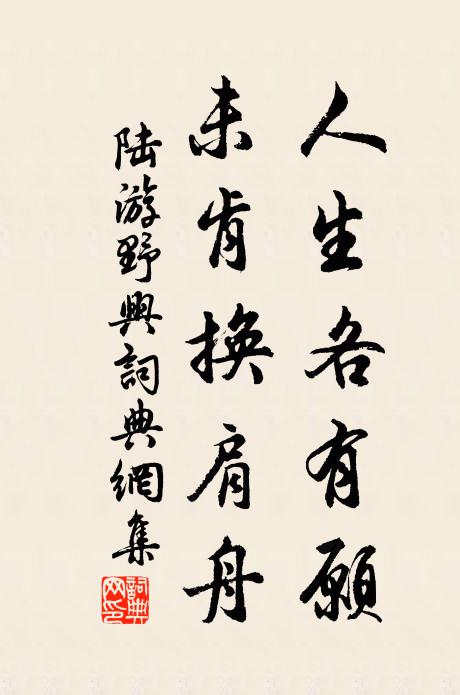 人生各有願
未肯換肩舟
陸游野興詞典網集
詞典網印